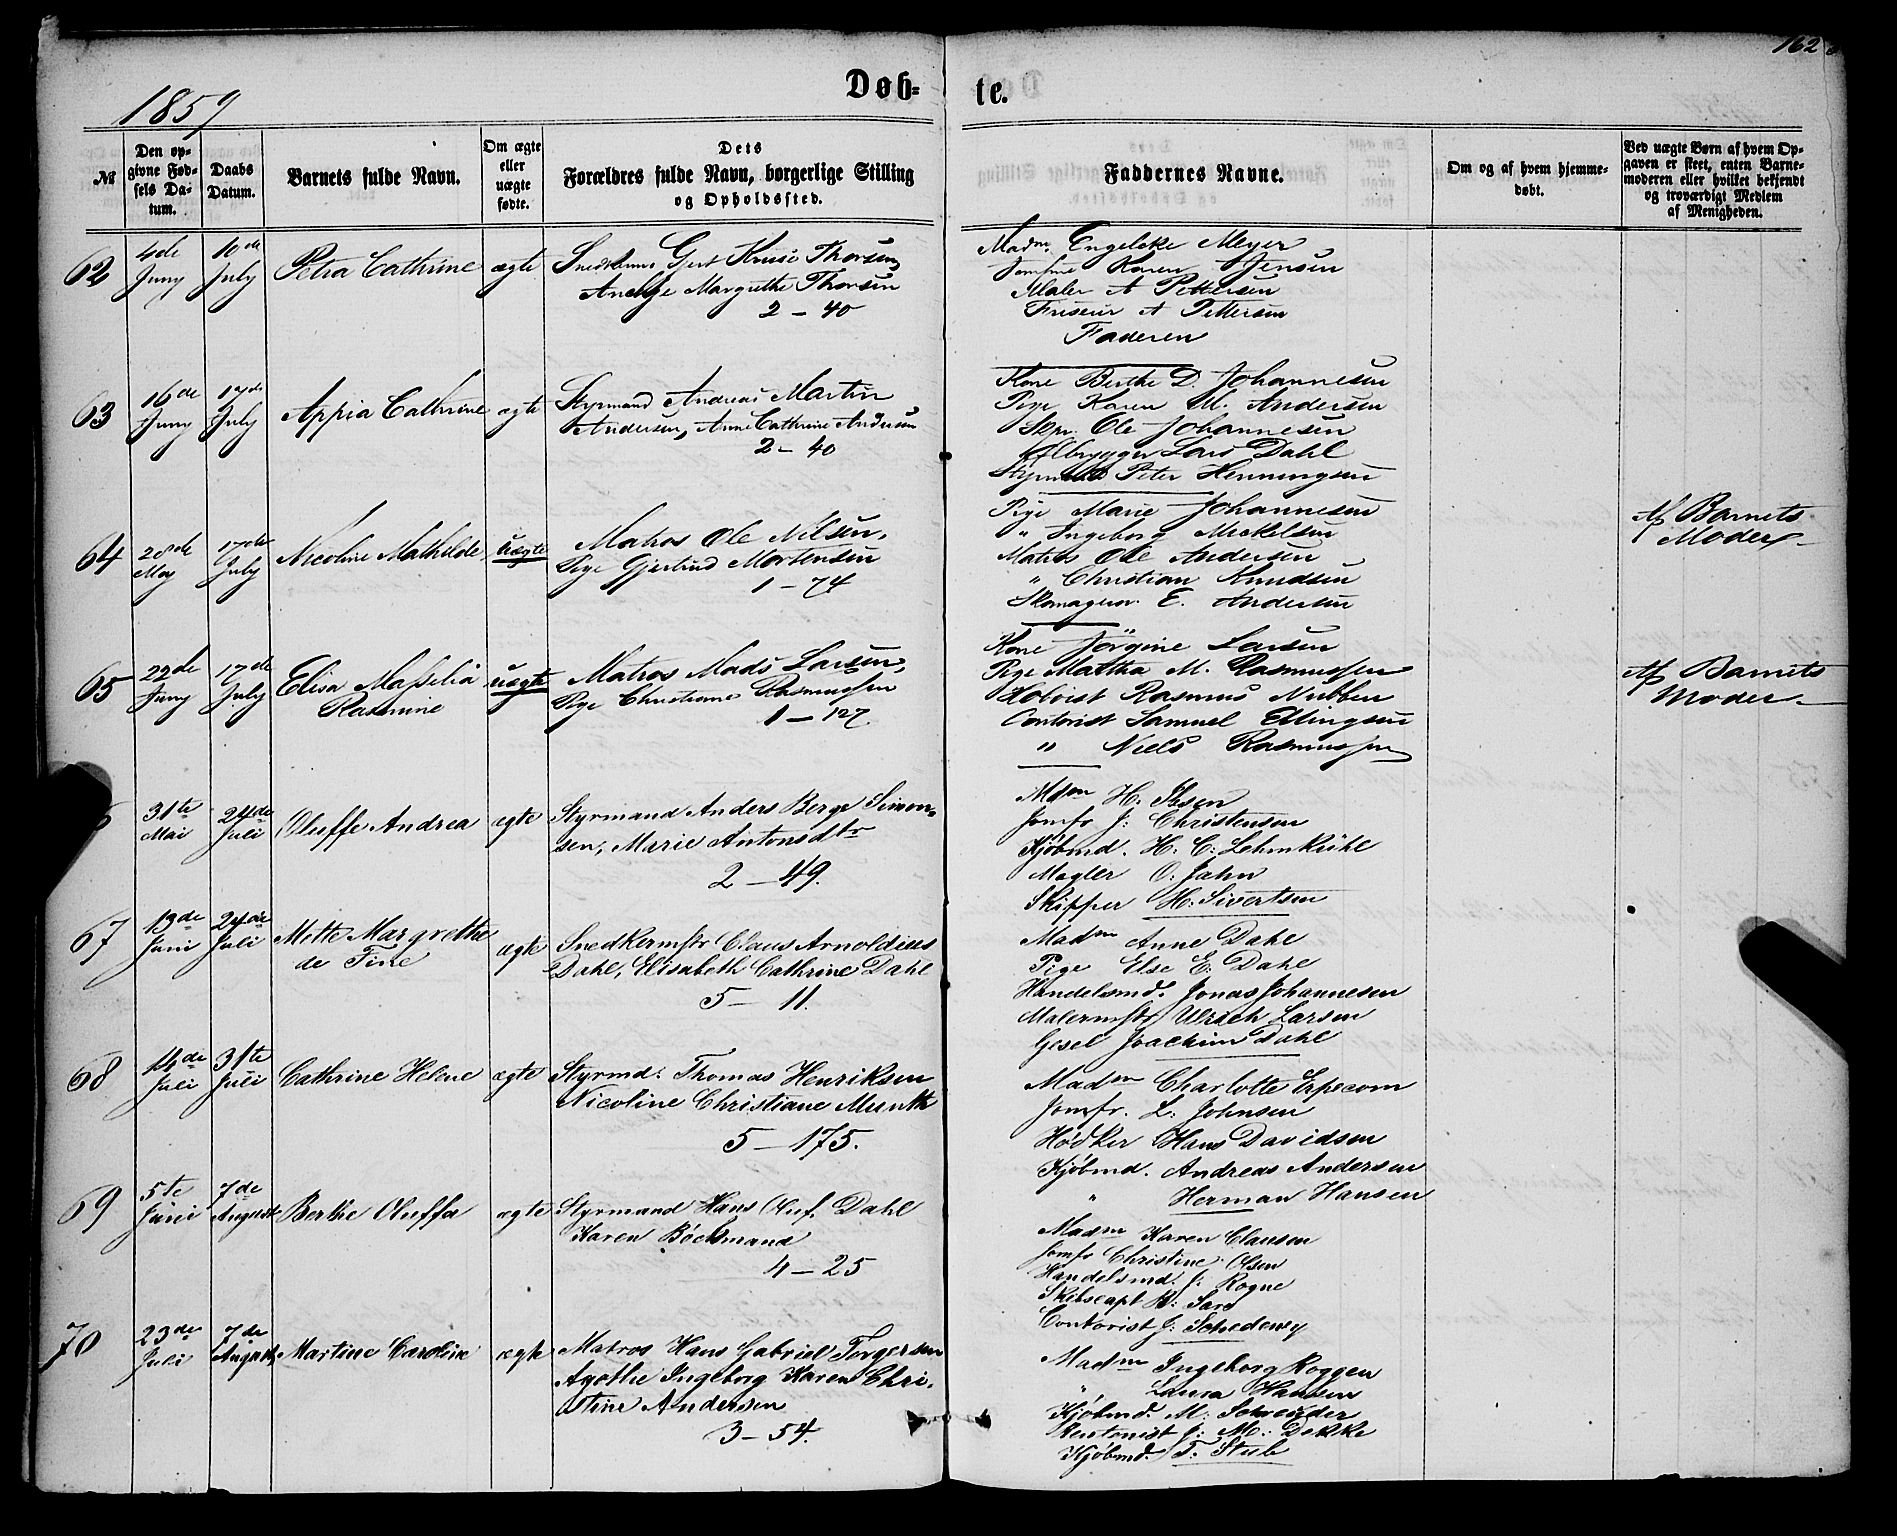 162
Døb-
te.
1859
№
Den op-
givne Fød-
sels Da-
tum.
Daabs
Datum.
Barnets fulde Navn.
Om ægte
eller
uægte
fødte.
Dets
Forældres fulde Navn, borgerlige Stilling
og Opholdssted.
Faddernes Navne.
Om og af hvem hjemme-
døbt.
Ved uægte Børn af hvem Op-
gaven er skeet, enten Barne-
moderen eller hvilket bekjendt
og troværdigt Medlem
af Menigheden.
62
4de
Juny
10de
July
Petra Cathrine
ægte
Gert Kruse Thorsen
Margrethe Thorsen
2 - 40
Madm. Engelcke Meyer
Jomfrue Karen Jensen
Maler A Pettersen
Friseur A Pettersen
Faderen
63
16de
Juny
17de
July
Appia Cathrine
ægte
Styrmand Andreas Martin
Andersen, Anne Cathrine Andersen
2 - 40
Kone Berthe D. Johannesen
Pige Karen M. Andersen
Skpr. Ole Johannesen
Ølbrygger Lars Dahl
Styrmand Peter Henningsen
64
28de
May
17de
July
Nicoline Mathilde
uægte
Matros Ole Nilsen,
Pige Gjertrud Mortensen
1 - 74
Pige Marie Johannesen
" Ingeborg Mickelsen
Matros Ole Andersen
" Christian Knudsen
Skomager E. Andersen
Af Barnets
Moder
65
22de
Juny
17de
July
Elisa Massilia
Rasmine
uægte
Matros Mads Larsen,
Pige Christiane Rasmussen
1 - 127.
Kone Jörgine Larsen
Pige Martha M. Rasmussen
Rasmus Nubben
Contorist Samuel Ellingsen
" Niels Rasmussen
Af Barnets
Moder
31te
Mai
24de
Juli
Oluffe Andrea
ægte
Styrmand Anders Berge Simon-
sen, Marie Antonsdtr
2 - 49.
Mdm H. Ibsen
Jomfr J: Christensen
Kjøbmd. H. C: Lehmkühl
Mægler O: Jahn
Skipper H: Sivertsen
67
13de
Juni
24de
Juli
Mette Margrethe
de Fine
ægte
Snedkermstr Claus Arnoldius
Dahl, Elisabeth Cathrine Dahl
5 - 11.
Madm Anne Dahl
Pige Else E. Dahl
Handelsmd. Jonas Johannesen
Malermstr Ulrich Larsen
Gesel Joachim Dahl
68
14de
Juli
31te
Juli
Cathrine Helene
ægte
Styrmd. Thomas Henriksen
Nicoline Christiane Munth
5 - 175.
Madm Charlotte Erpecom
Jomfr. L: Johnsen
Hødker Hans Davidsen
Kjøbmd. Andreas Andersen
" Herman Hansen
69
5te
Juni
7de
August
Berthe Oluffa
ægte
Styrmand Hans Oluf Dahl
Karen Bøckmand
4 - 25
Madm Karen Clausen
Jomfr Christine Olsen
Handelsmd. J: Rogne
Skibscapt
Contorist J:
70
23de
Juli
7de
August
Martine Caroline
ægte
Matros Hans Gabriel Torgersen
Agathe Ingeborg Karen Chri-
stine Andersen
3 - 54.
Madm Ingeborg Roggen
" Laura Hansen
Kjøbmd. M: Schreuder
J: M: Dekke
Kjøbmd. T: Stub